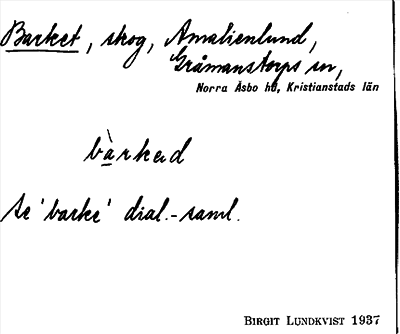 Barket, skog, Amalienlund,
Gråmanstorps sn,
Norra Åsbo hd, Kristianstads län
bàrkəd
Se 'barke' dial.-saml.
BIRGIT LUNDKVIST 1937